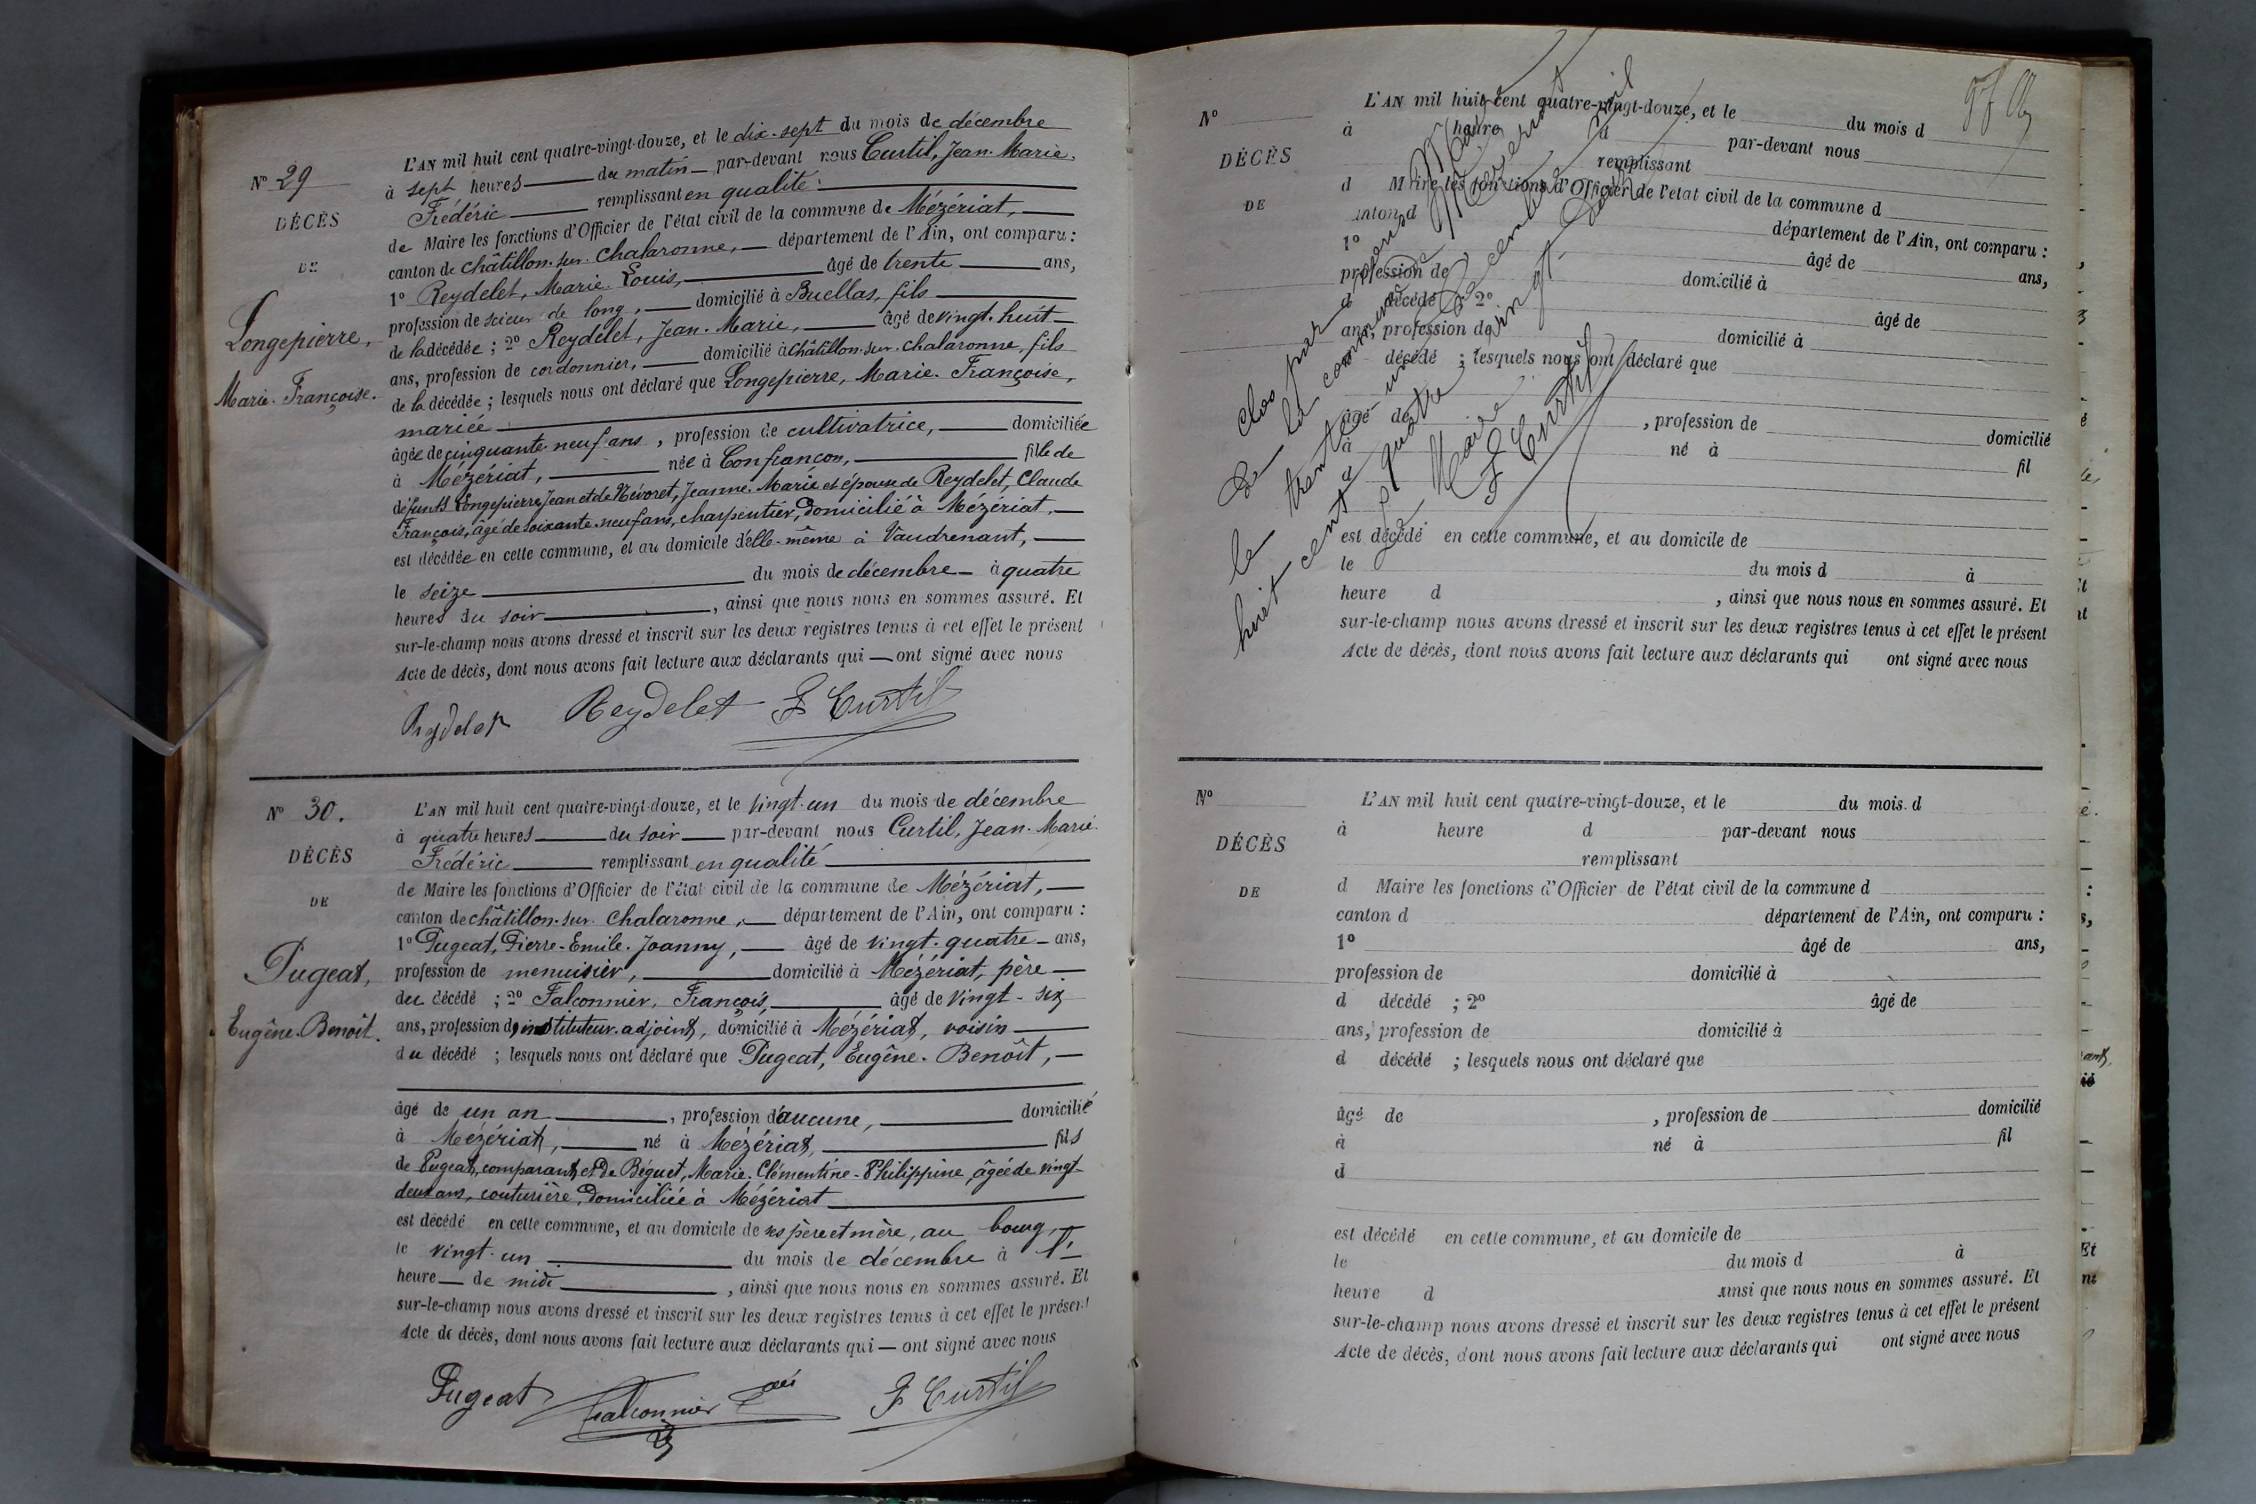 Nº 29
DÉCÈS
DE
Longepierre,
Marie-Françoise.
L'AN mil huit cent quatre-vingt-douze, et le dix-sept du mois de décembre
à sept heures du matin par-devant nous Curtil, Jean-Marie-
Frédéric remplissant en qualité
de Maire les fonctions d'Officier de l'état civil de la commune de Mézériat,
canton de Châtillon-sur-Chalaronne, département de l'Ain, ont comparu :
1º Reydelet, Marie-Louis, âgé de trente ans,
profession de scieur de long, domicilié à Buellas, fils
de la décédée ; 2º Reydelet, Jean-Marie, âgé de vingt-huit
ans, profession de cordonnier, domicilié à Châtillon-sur-Chalaronne, fils
de la décédée ; lesquels nous ont déclaré que Longepierre, Marie-Françoise,
mariée
âgée de cinquante-neuf ans, profession de cultivatrice, domiciliée
à Mézériat, née à Confrançon, fille de
défunts Longepierre Jean et de Névoret, Jeanne-Marie et épouse de Reydelet, Claude
François, âgé de soixante-neuf ans, charpentier, domicilié à Mézériat,
est décédée en cette commune, et au domicile d'elle-même à Vaudrenant,
le seize du mois de décembre à quatre
heures du soir, ainsi que nous nous en sommes assuré. Et
sur-le-champ nous avons dressé et inscrit sur les deux registres tenus à cet effet le présent
Acte de décès, dont nous avons fait lecture aux déclarants qui ont signé avec nous
Reydelet Reydelet F Curtil
Nº 30.
DÉCÈS
DE
Pugeat,
Eugène-Benoit.
L'AN mil huit cent quatre-vingt-douze, et le vingt-un du mois de décembre
à quatre heures du soir par-devant nous Curtil, Jean-Marie-
Frédéric remplissant en qualité
de Maire les fonctions d'Officier de l'état civil de la commune de Mézériat,
canton de Châtillon-sur-Chalaronne, département de l'Ain, ont comparu :
1º Pugeat, Pierre-Emile-Joanny, âgé de vingt-quatre ans,
profession de menuisier, domicilié à Mézériat, père
du décédé ; 2º Falconnier, François, âgé de vingt-six
ans, profession d'instituteur-adjoint, domicilié à Mézériat, voisin
du décédé ; lesquels nous ont déclaré que Pugeat, Eugêne-Benoît,
âgé de un an, profession d'aucune, domicilié
à Mézériat, né à Mézériat, fils
de Pugeat, comparant et de Béguet, Marie-Clémentine-Philippine, âgée de vingt-
deux ans, couturière, domiciliée à Mézériat
est décédé en cette commune, et au domicile de ses père et mère, au bourg,
le vingt-un du mois de décembre à l'
heure de midi, ainsi que nous nous en sommes assuré. Et
sur-le-champ nous avons dressé et inscrit sur les deux registres tenus à cet effet le présent
Acte de décès, dont nous avons fait lecture aux déclarants qui ont signé avec nous
Pugeat Falconnier F Curtil
Nº
DÉCÈS
DE
L'AN mil huit cent quatre-vingt-douze, et le du mois d
à heure d par-devant nous
remplissant
d Maire les fonctions d'Officier de l'état civil de la commune d
canton d département de l'Ain, ont comparu :
1º âgé de ans,
profession de domicilié à
d décédé ; 2º âgé de
ans, profession de domicilié à
d décédé ; lesquels nous ont déclaré que
âgé de , profession de domicilié
à né à fil
d
est décédé en cette commune, et au domicile de
le du mois d à
heure d , ainsi que nous nous en sommes assuré. Et
sur-le-champ nous avons dressé et inscrit sur les deux registres tenus à cet effet le présent
Acte de décès, dont nous avons fait lecture aux déclarants qui ont signé avec nous
Clos par nous Maire
de la commune de Mézériat
le trente-un Décembre mil
huit cent quatre vingt douze
Le Maire
F Curtil
Nº
DÉCÈS
DE
L'AN mil huit cent quatre-vingt-douze, et le du mois d
à heure d par-devant nous
remplissant
d Maire les fonctions d'Officier de l'état civil de la commune d
canton d département de l'Ain, ont comparu :
1º âgé de ans,
profession de domicilié à
d décédé ; 2º âgé de
ans, profession de domicilié à
d décédé ; lesquels nous ont déclaré que
âgé de , profession de domicilié
à né à fil
d
est décédé en cette commune, et au domicile de
le du mois d à
heure d ainsi que nous nous en sommes assuré. Et
sur-le-champ nous avons dressé et inscrit sur les deux registres tenus à cet effet le présent
Acte de décès, dont nous avons fait lecture aux déclarants qui ont signé avec nous